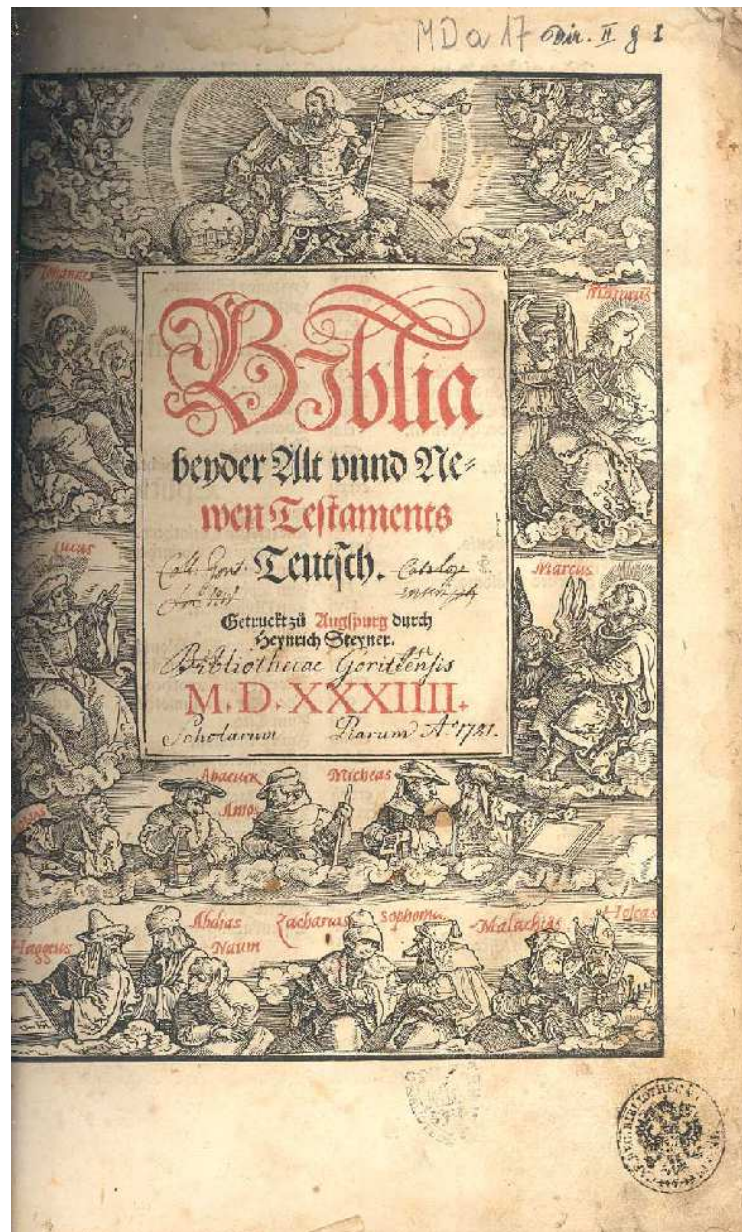 MDa 17 Dir. II g 1
Johannes
Matheus
Biblia
beyder Alt vnnd Ne-
wen Testaments
Teutsch.
Lucus
Marcus
Getruckt zů Augspurg durch
Heynrich Steyner.
Bibliothecae Goritiensis
M.D.XXXIIII.
Scholarum Piarum Aº 1741.
Abacuck
Micheas
Amos
Haggeus
Abdias
Naum
Zacharias
Sophonia
Malachias
Hoseas